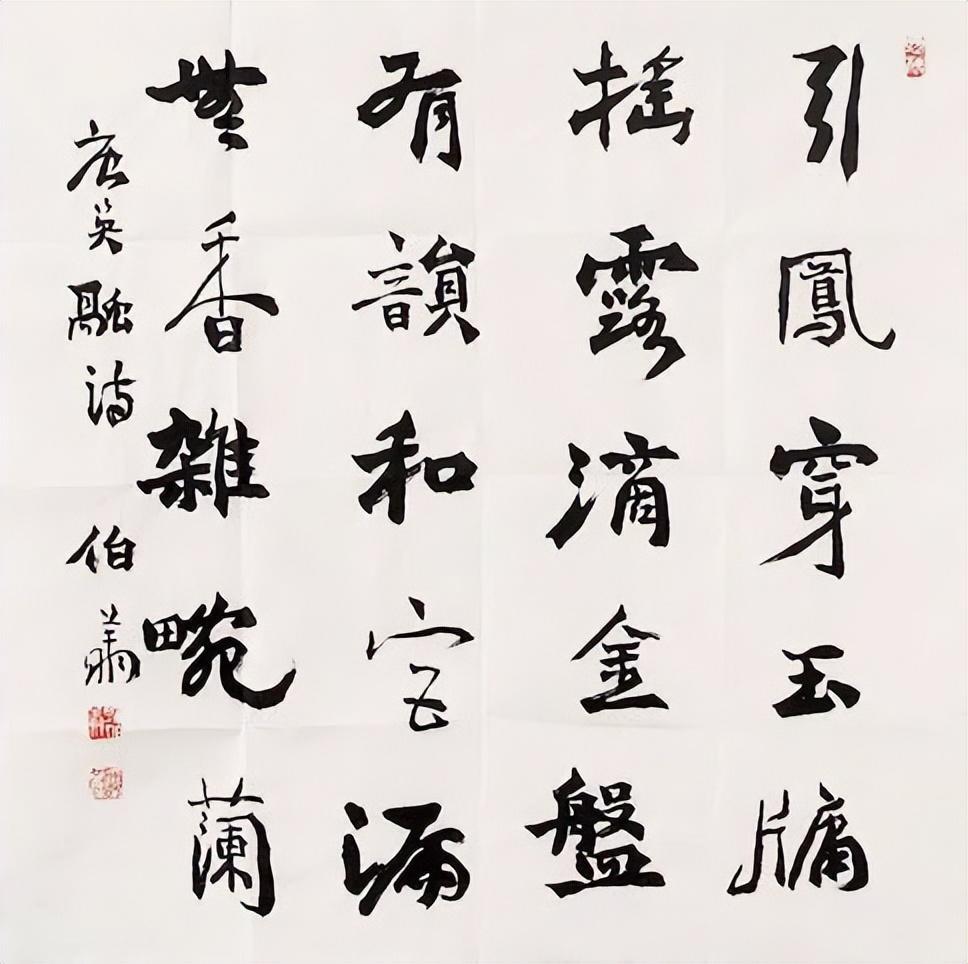 引鳳穿玉牖
搖露滴金盤
有韻和宮漏
無香雜畹蘭
唐吳融詩 伯翔